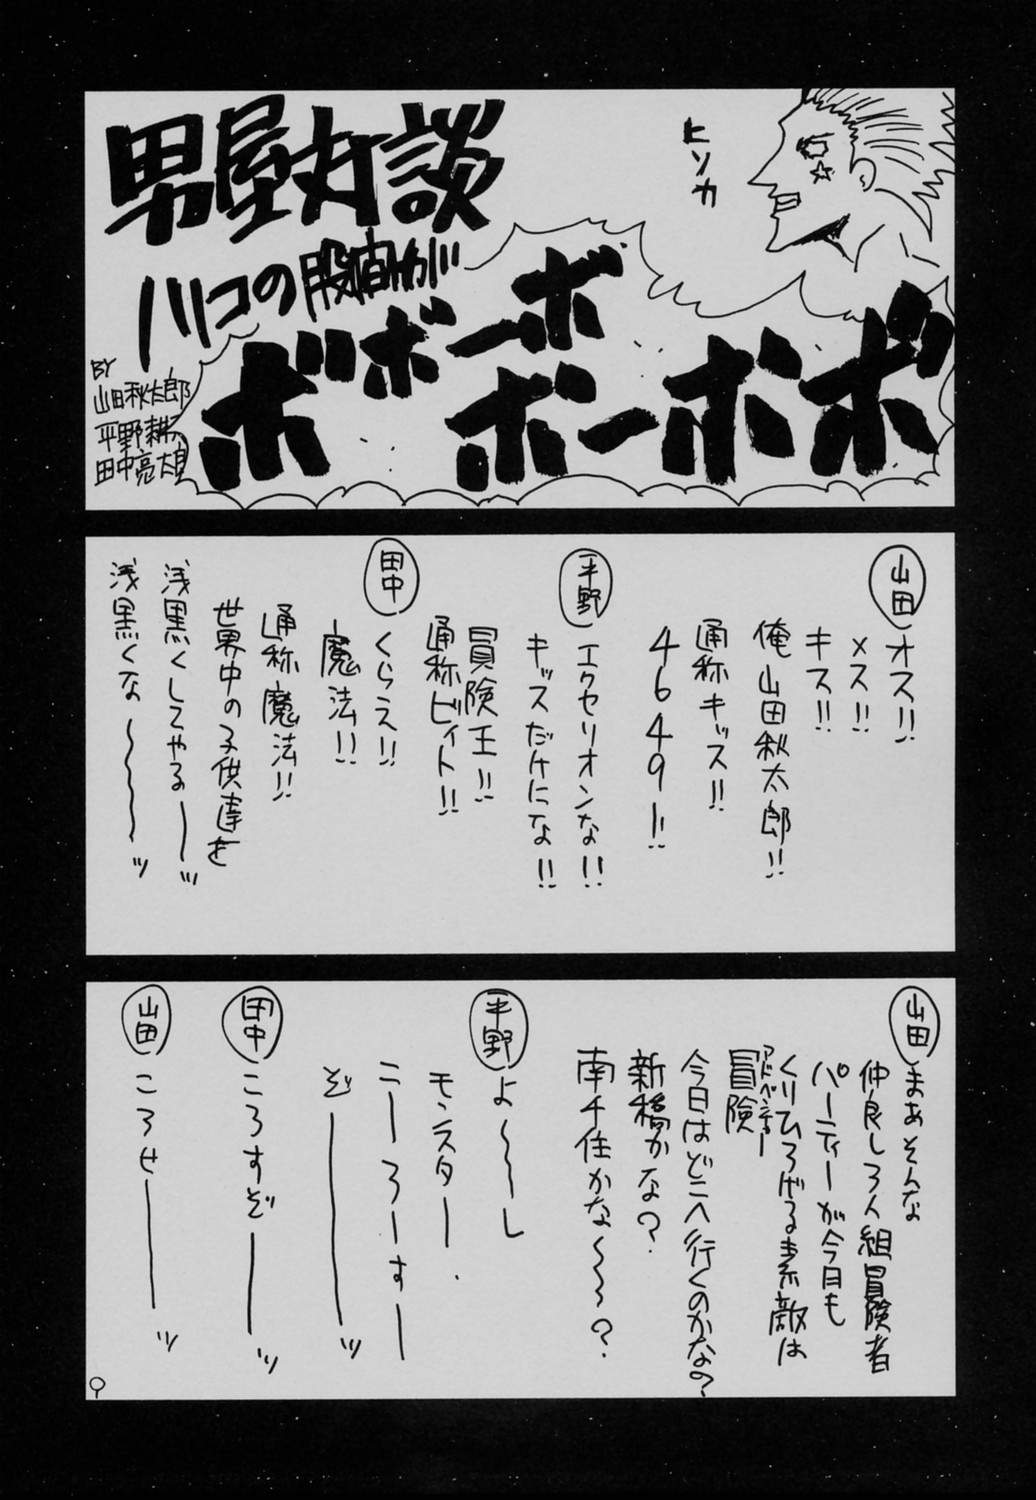 男屋対談
ハリコの股間が
ボボーボ
ボーボボ
ヒソカ
BY
山田秋太郎
平野耕太
田中亮太郎
山田
オス!!
メス!!
キス!!
俺山田秋太郎!!
通称キッス!!
4649ー!!
平野
エクセリオンな!!
キッスだけにな!!
冒険王!!
通称ビィト!!
田中
くらえ!!
魔法!!
通称魔法!!
世界中の子供達を
浅黒くしてやるーーッ
浅黒くな〜〜〜ッ
山田
まぁそんな
仲良し3人組冒険者
パーティーが今日も
くりひろげる素敵は
冒険
アドベンチャー
今日はどこへ行くのかな?
新橋かな?
南千住かな〜〜?
平野
よ〜〜し
モンスター
こーろーすー
ぞーーーッ
田中
ころすぞーーッ
山田
ころせーーーッ
9